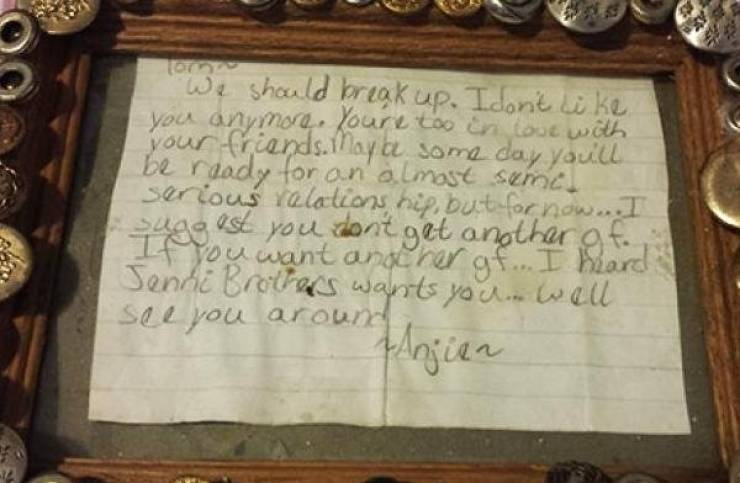 Tom~
We should break up. I dont like
you anymore. Youre too in love with
your friends. Maybe some day you'll
be ready for an almost semi-
serious relationship, but for now... I
suggest you don't get another gf.
If you want another gf... I heard
Jenni Brothers wants you... well
see you around
~Anjie~